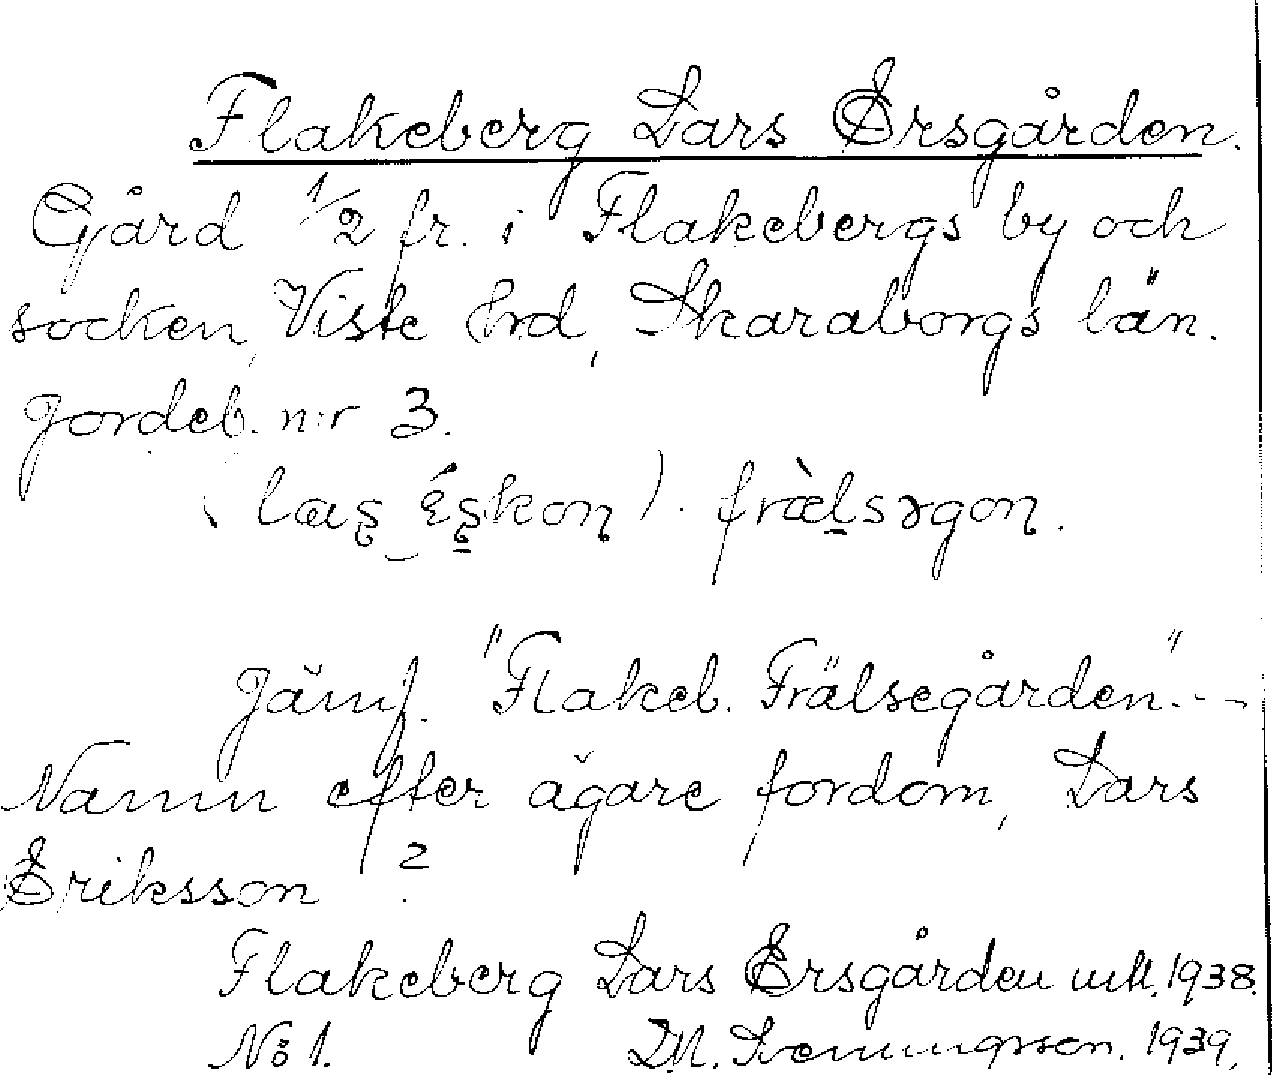 Flakeberg Lars Ersgården.
Gård 1/2 fr. i Flakebergs by och
socken, Viste hrd, Skaraborgs län.
Jordeb. n:r 3.
( læş_ę́ş̱kon̨ ). fræ̀ḻsəgon̨.
Jämf. "Flakeb. Frälsegården".-–
Namn efter ägare fordom, Lars
Eriksson ?
Flakeberg Lars Ersgården mtl. 1938.
No 1. D.N. Svenungsson. 1939.